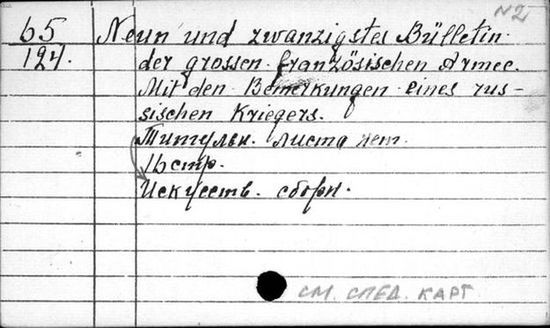 N2
65 Neun und zwanzigstes Bülletin
124. der grossen französischen Armee.
Mit den Bemerkungen eines rus-
sischen Kriegers.
Титульн. листа нет.
16 стр.
Искусств. сборн.
см. след. карт